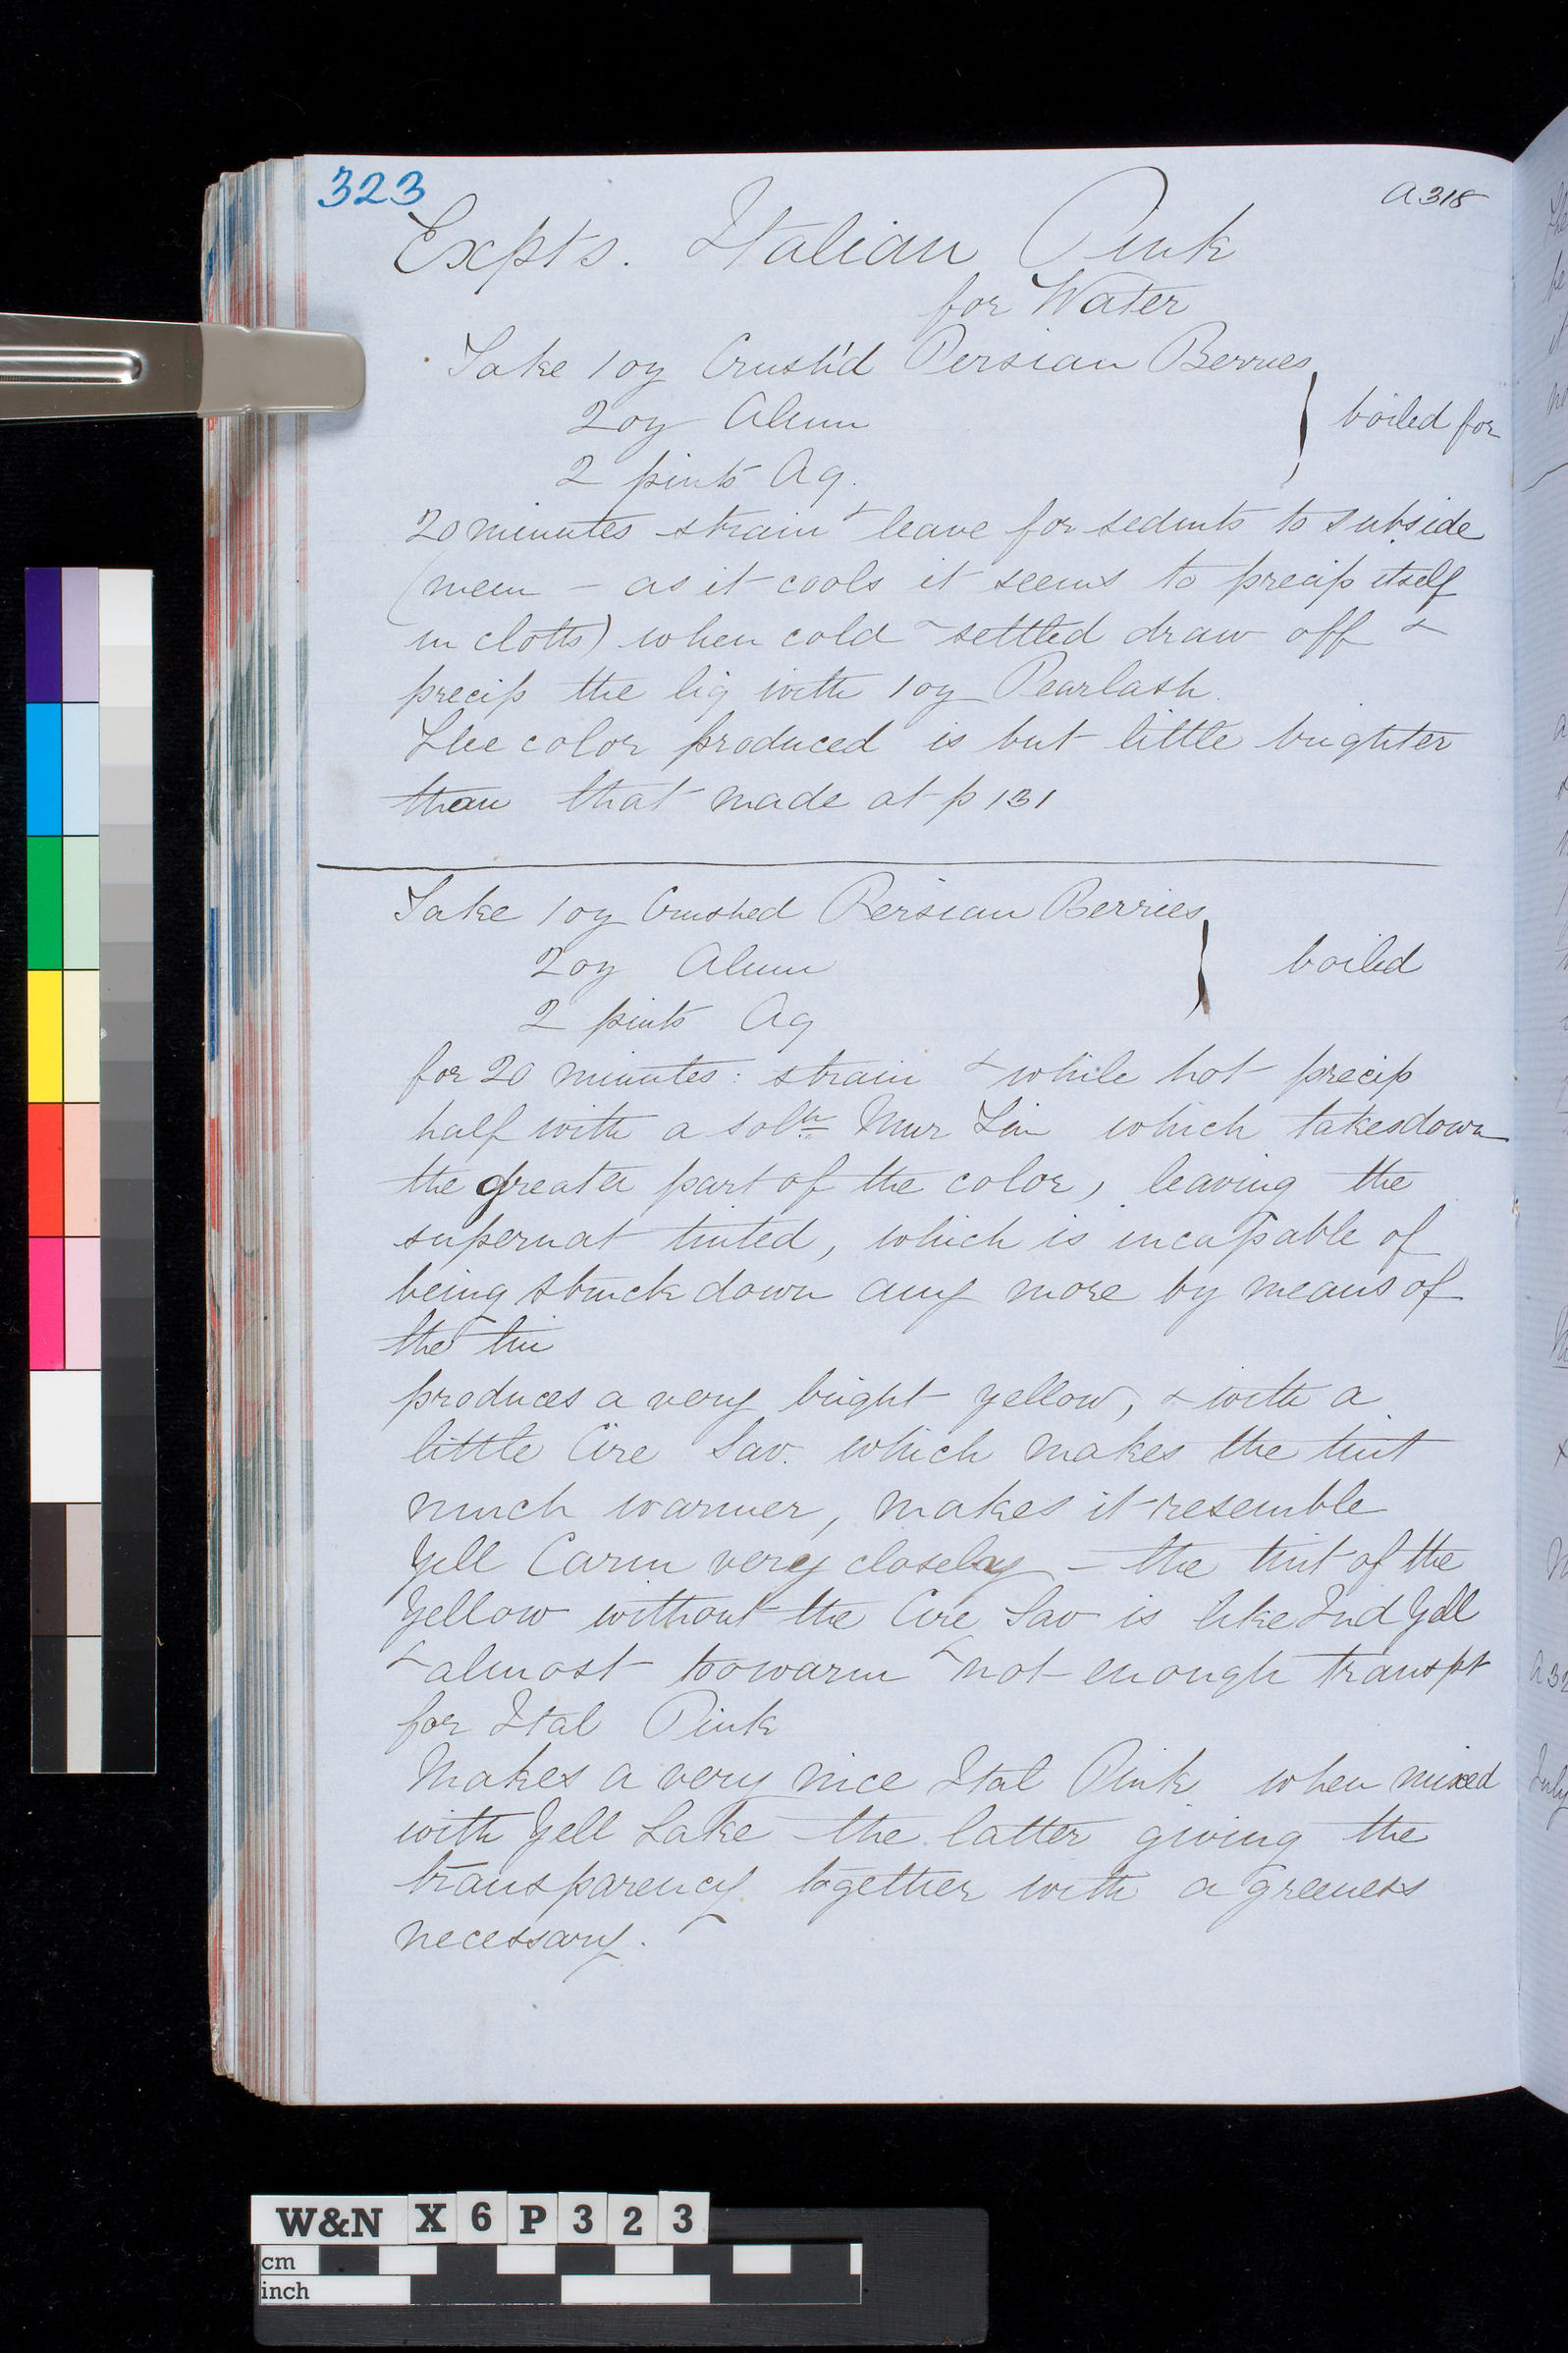 323
A318
Expts. Italian Pink
for Water
Take 1 oz Crush'd Persian Berries
2 oz Alum
boiled for
2 pints Aq.
20 minutes strain & leave for sedmts to subside
(mem - as it cools it seems to precip itself
in clotts) when cold & settled draw off &
precip the liq with 1 oz Pearlash.
The color produced is but little brighter
than that made at p 131
Take 1 oz Crushed Persian Berries
2 oz Alum
boiled
2 pints Aq
for 20 minutes: strain & while hot precip
half with a soltn Mur Tin which takes down
the greater part of the color, leaving the
supernat tinted, which is incapable of
being struck down any more by means of
the tin
produces a very bright yellow, & with a
little Cire Sav. which makes the tint
much warmer, makes it resemble
Yell Carm very closely - the tint of the
Yellow without the Cire Sav is like Ind Yell
& almost too warm & not enough transpt
for Ital Pink
Makes a very nice Ital Pink when mixed
with Yell Lake the latter giving the
transparency together with a greeness
necessary.
W&N X6P323
cm
inch